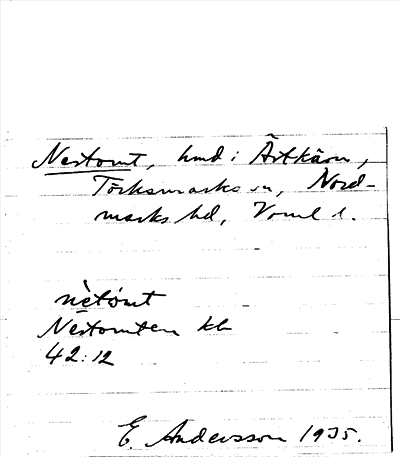 Nertomt, hmd i Ärtkärn,
Töcksmarks sn, Nord-
marks hd, Vrml l.
nètòmt
Nertomten kb
42:12
E. Andersson 1935.